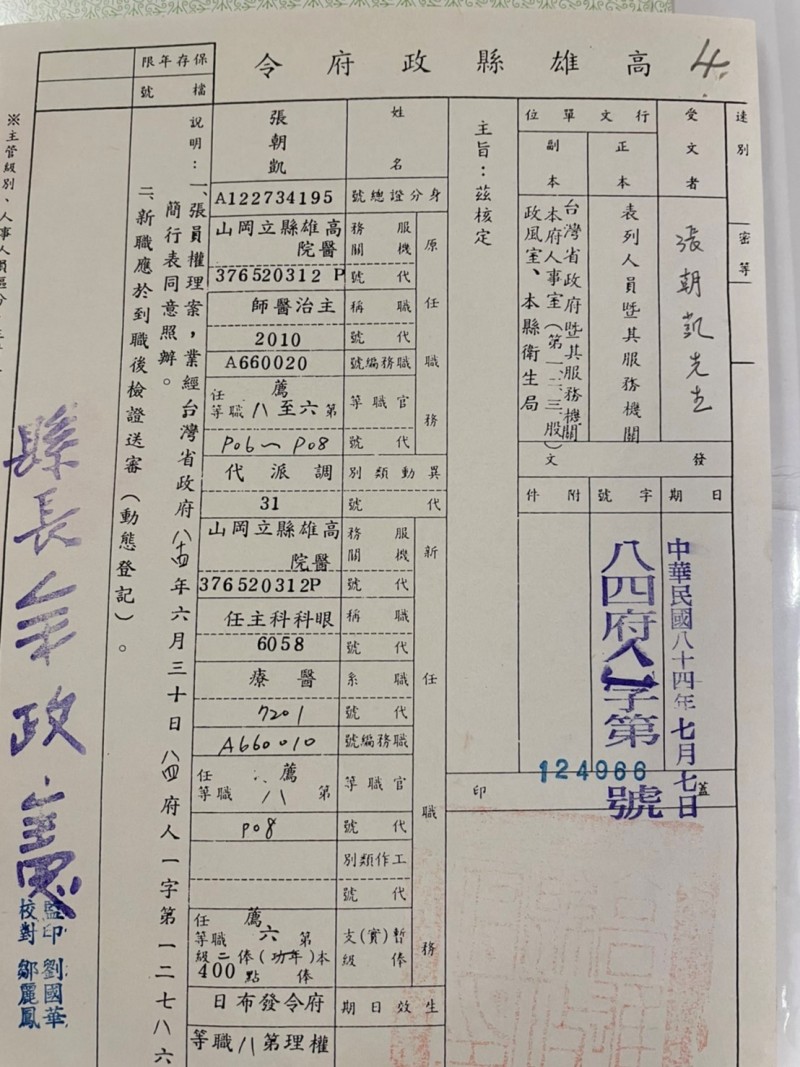 4.
高雄縣政府令
保存年限
檔號
速別
密等
受文者
張朝凱先生
行文單位
正本
表列人員暨其服務機關
副本
台灣省政府暨其服務機關
本府人事室(第一、二、三股)
政風室、本縣衛生局
發文
日期
中華民國八十四年七月七日
字號
八四府人一字第
124966
號
附件
蓋印
主旨：茲核定
姓名
張朝凱
身分證總號
A122734195
原任職務
服務機關
高雄縣立岡山醫院
代號
376520312 P
職稱
主治醫師
代號
2010
職務編號
A660020
官職等
薦任
第六至八職等
代號
P06～P08
異動類別
調派代
代號
31
新任職務
服務機關
高雄縣立岡山醫院
代號
376520312P
職稱
眼科科主任
代號
6058
職系
醫療
代號
7201
職務編號
A660010
官職等
薦任
第八職等
代號
P08
工作類別
代號
暫(實)支俸級
薦任
第六職等
本(年功)俸二級
俸點400
生效日期
府令發布日
權理第八職等
說明：一、張員權理案，業經台灣省政府八十四年六月三十日八四府人一字第一二七八六
簡行表同意照辦。
二、新職應於到職後檢證送審(動態登記)。
※主管級別、人事人員區分
縣長余政憲
監印 劉國華
校對 鄒麗鳳